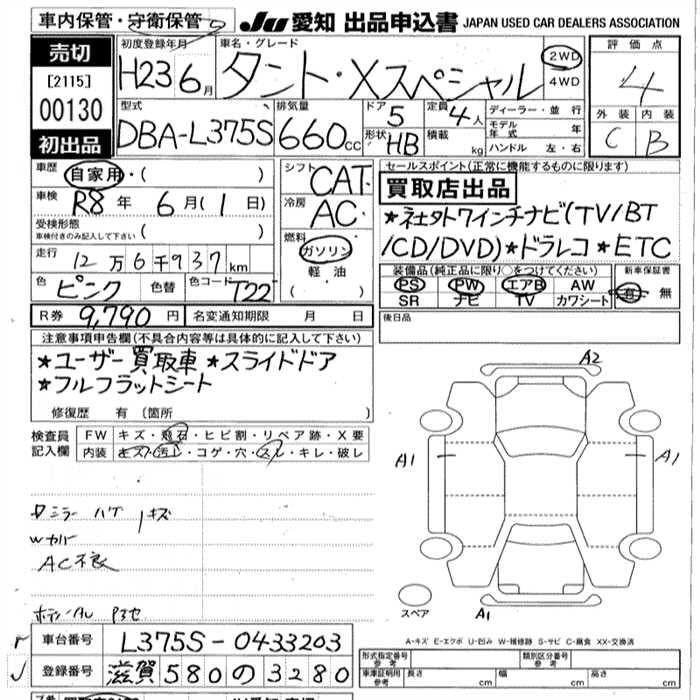 車内保管・守衛保管
JU 愛知 出品申込書 JAPAN USED CAR DEALERS ASSOCIATION
売切
[2115]
00130
初出品
初度登録年月
H23 6月
車名・グレード
タント・Xスペシャル
2WD
4WD
評価点
4
外装 内装
C B
型式
DBA-L375S
排気量
660cc
ドア 5
形状 HB
定員 4人
積載 kg
ディーラー・並行
モデル年式 年
ハンドル 左・右
車歴 自家用・( )
車検 R8年 6月(1日)
受検形態
車検付きのみ記入して下さい ( )
走行 12万6千937km
色 ピンク 色替 色コード T22
シフト CAT
冷房 AC
燃料
ガソリン
軽油
( )
セールスポイント(正常に機能するものに限ります)
買取店出品
★社外ワインチナビ(TV/BT
/CD/DVD)★ドラレコ★ETC
装備品(純正品に限り○をつけてください) 新車保証書
PS PW エアB AW 有 無
SR ナビ TV カワシート
R券 9,790円 名変通知期限 月 日
後日品
注意事項申告欄(不具合内容等は具体的に記入して下さい)
★ユーザー買取車★スライドドア
★フルフラットシート
修復歴 有 〔箇所 〕
検査員記入欄
FW キズ・飛石・ヒビ割・リペア跡・X要
内装 キズ・汚レ・コゲ・穴・スレ・キレ・破レ
ミラー ハゲ キズ
Wカバー
A2
A1
A1
A1
スペア
A-キズ E-エクボ U-凹み W-補修跡 S-サビ C-腐食 XX-交換済
車台番号 L375S-0433203
登録番号 滋賀580の3280
形式指定番号 参考
類別区分番号 参考
車庫証明用 参考 長さ cm 幅 cm 高さ cm